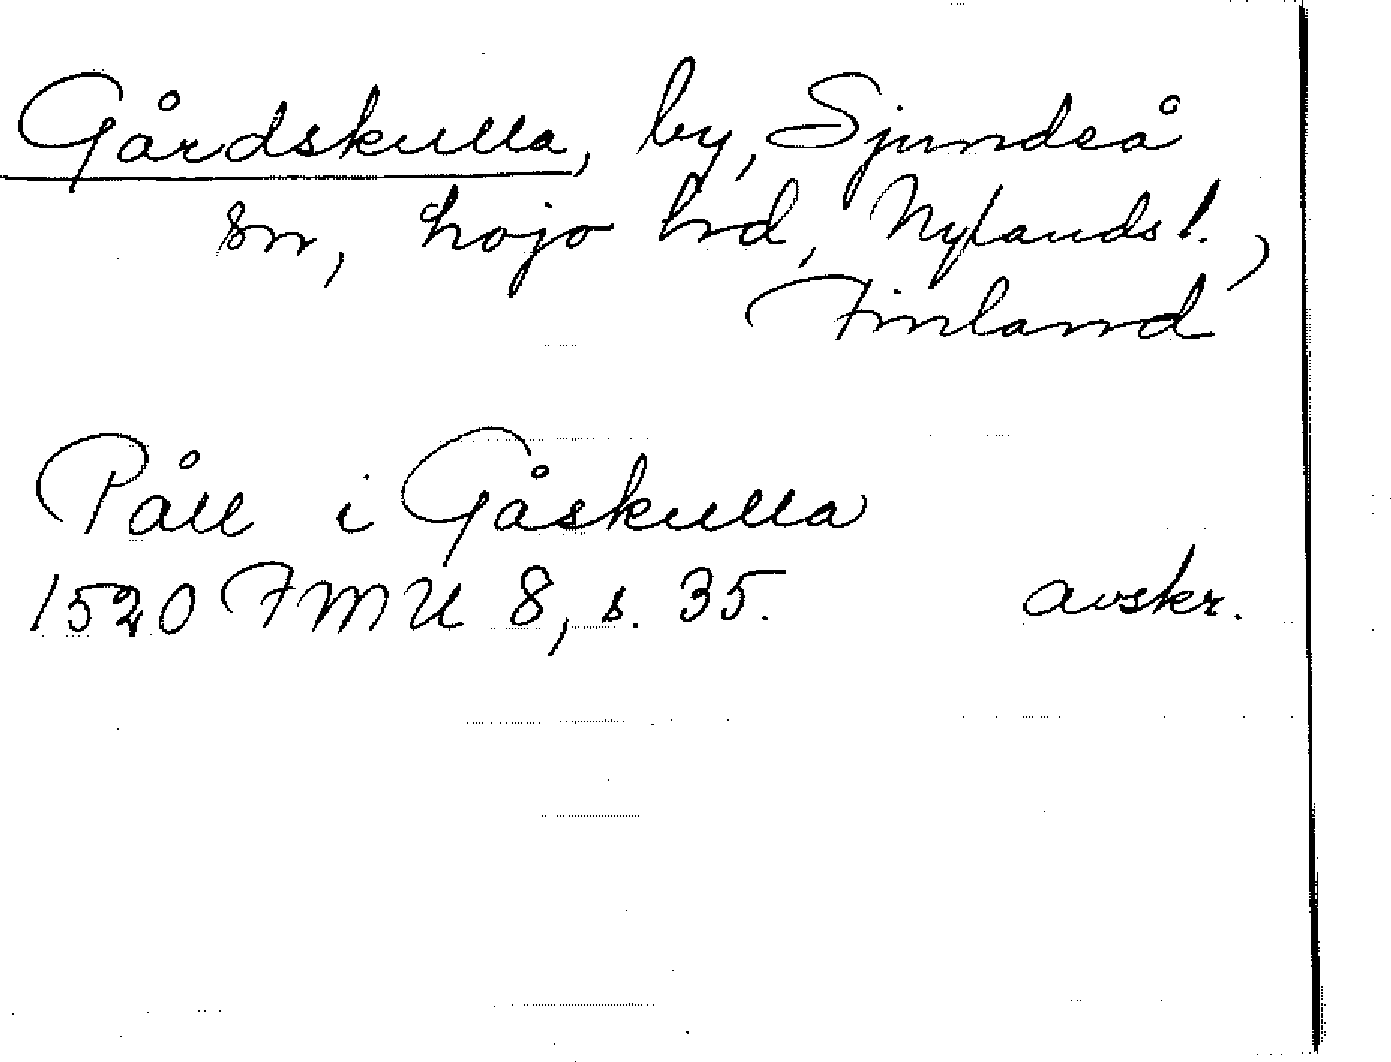 Gårdskulla, by, Sjundeå
sn, Lojo hrd, Nylands l.,
Finland
Påll i Gåskulla
1520 FMU 8, s. 35. avskr.